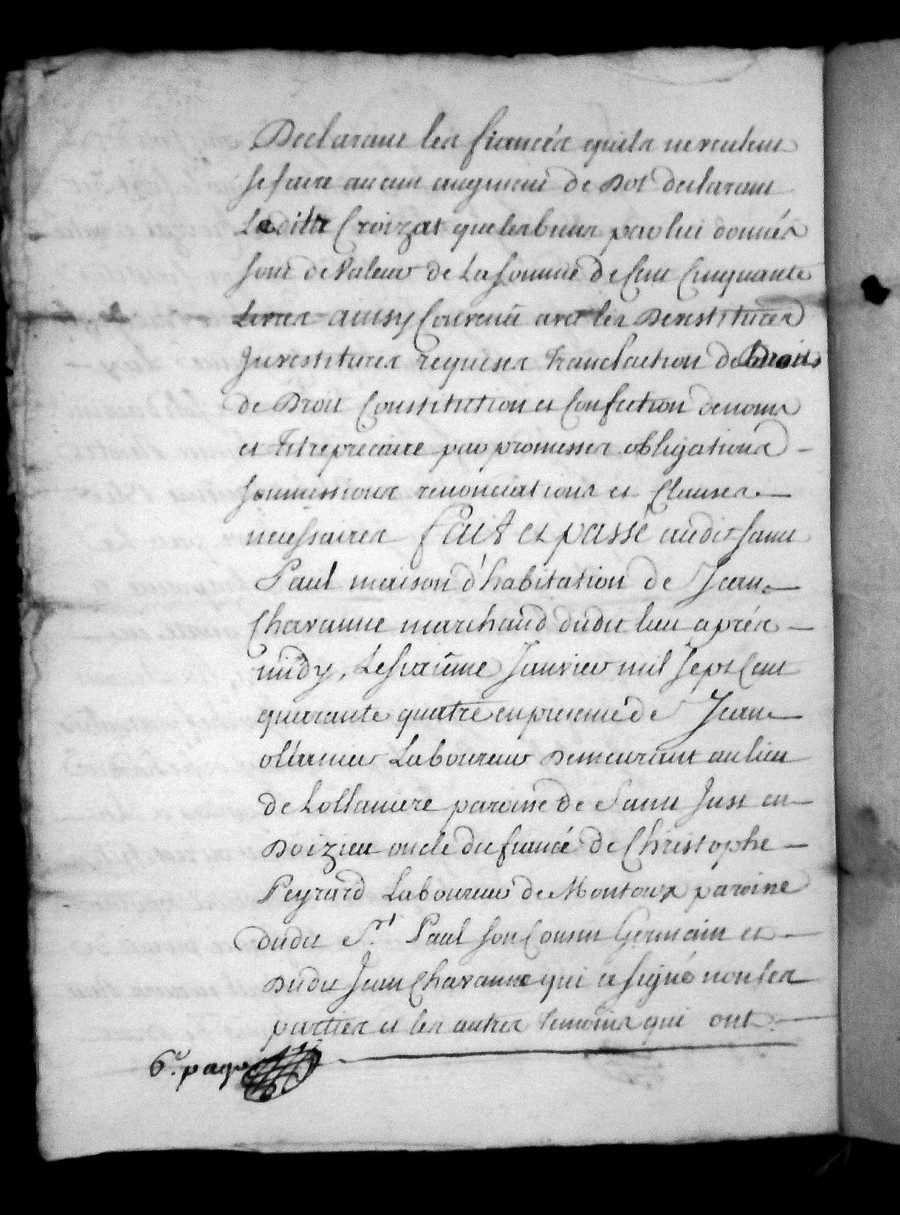 Declarant les fiancés quils ne veulent
se faire aucun augment de Dot declarant
Ledit Croizat que les biens par lui donnés
sont de valeur de La somme de Cent Cinquante
Livres ainsy Convenu avec les Devestitures
Investitures requises translaction de Droits
de Droit Constitution et Confection de noms
et titre precaire par promesses obligations
soumissions renonciations et Clauses
necessaires fait et passé audit saint
Paul maison d'habitation de Jean
Chavanne marchand dudit lieu après
midy, Le sixième Janvier mil sept Cent
quarante quatre en presence de Jean
ollanier Laboureur Demeurant au lieu
de Lollaniere paroisse de Saint Just en
Doizieu oncle du fiancé de Christophe
Peyrard Laboureur de Montoux paroisse
dudit St Paul son Cousin Germain et
Dudit Jean Chavanne qui a signé non les
parties et les autres temoins qui ont
6e page